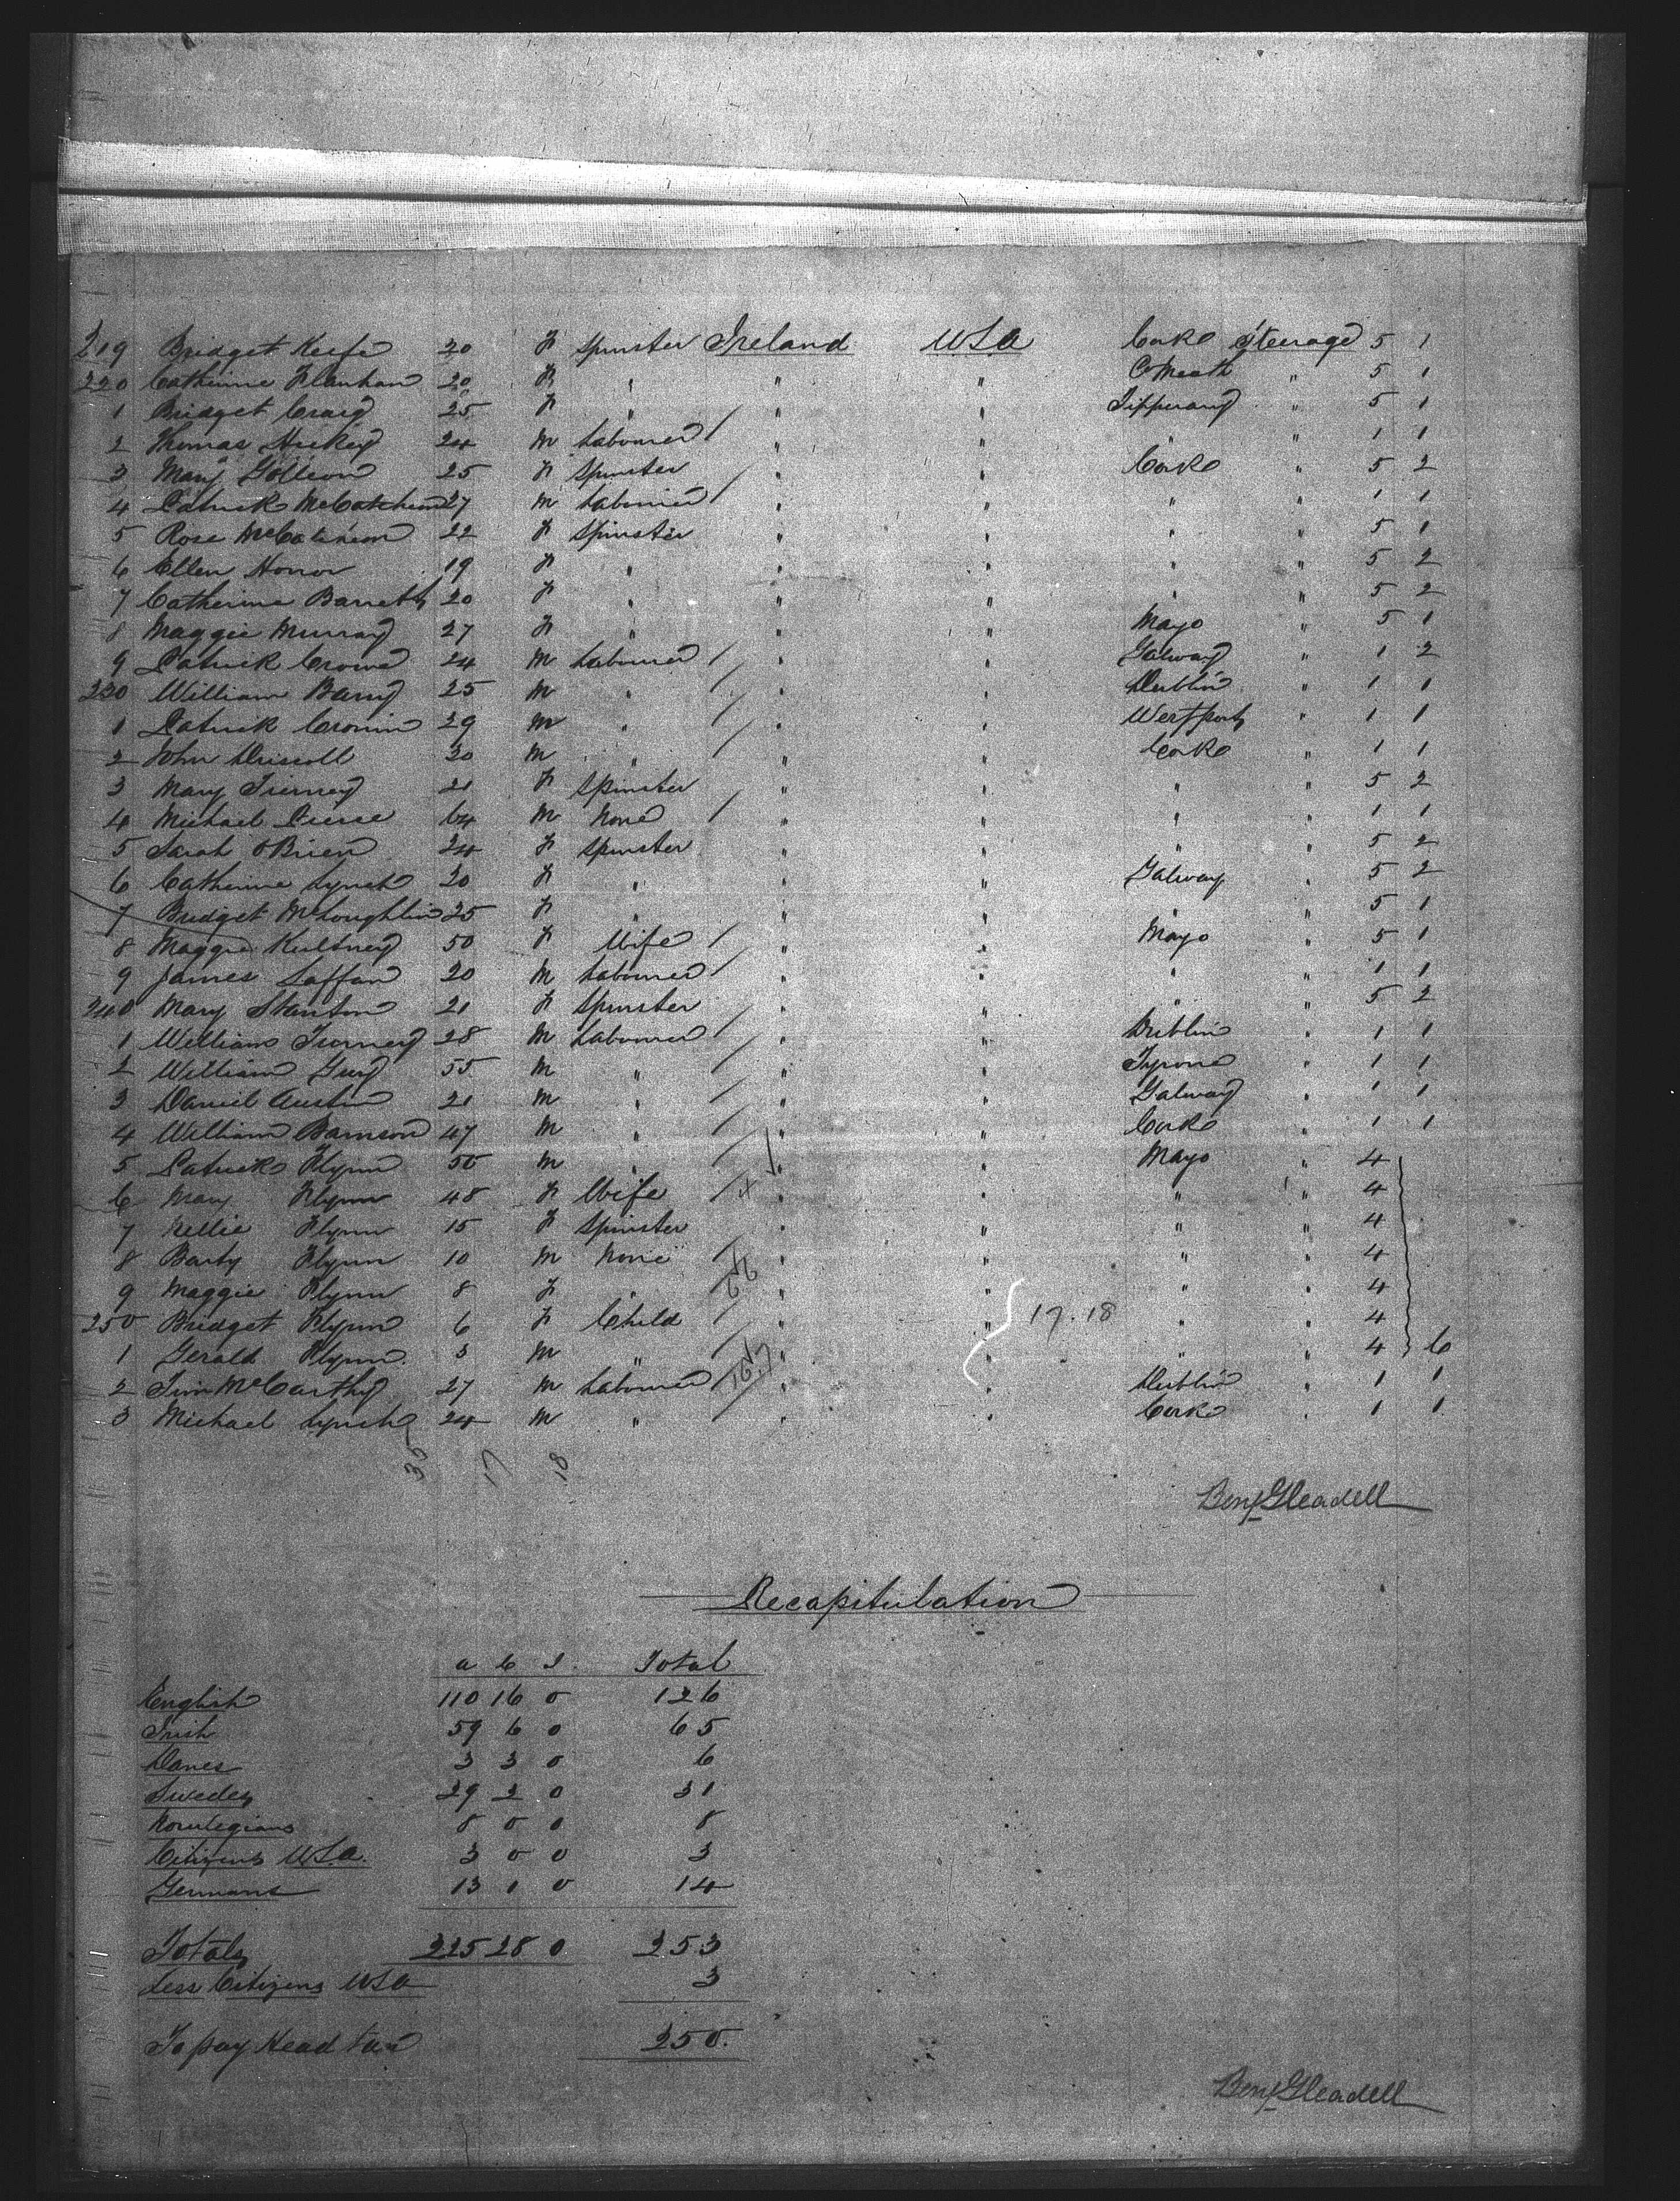 219 Bridget Keefe 20 F Spinster Ireland USA Cork Steerage 5 1
220 Catherine Flanhan 20 F " " " Co Meath " 5 1
1 Bridget Craig 25 F " " " Tipperary " 5 1
2 Thomas Hickey 24 M Labourer / " " " " 1 1
3 Mary 25 F Spinster " " Cork " 5 2
4 Patrick 27 M Labourer / " " " " 1 1
5 Rose 22 F Spinster " " " " 5 1
6 Ellen Honor 19 F " " " " " 5 2
7 Catherine Barrett 20 F " " " " " 5 2
8 Maggie Murray 27 F " " " Mayo " 5 1
9 Patrick Crowe 24 M Labourer / " " Galway " 1 2
230 William Barry 25 M " / " " Dublin " 1 1
1 Patrick Cronin 29 M " / " " Westport " 1 1
2 John Driscoll 30 M " / " " Cork " 1 1
3 Mary Tierney 21 F Spinster " " " " 5 2
4 Michael Pierse 64 M None / " " " " 1 1
5 Sarah OBrien 24 F Spinster " " " " 5 2
6 Catherine Lynch 20 F " " " Galway " 5 2
7 Bridget McLoughlin 25 F " " " " " 5 1
8 Maggie 50 F Wife / " " Mayo " 5 1
9 James Laffan 20 M Labourer / " " " " 1 1
240 Mary Stanton 21 F Spinster " " " " 5 2
1 William Tierney 28 M Labourer / " " Dublin " 1 1
2 William 55 M " / " " Tyrone " 1 1
3 Daniel Austin 21 M " / " " Galway " 1 1
4 William Bamson 47 M " / " " Cork " 1 1
5 Patrick Flynn 50 M " / " " Mayo " 4
6 Mary Flynn 48 F Wife / " " " " 4
7 Nellie Flynn 15 F Spinster " " " " 4
8 Barty Flynn 10 M None / " " " " 4
9 Maggie Flynn 8 F " " " " " 4
250 Bridget Flynn 6 F Child / " " 17.18 " " 4
1 Gerald Flynn 3 M " / " " " " 4 6
2 Tim McCarthy 27 M Labourer / " " Dublin " 1 1
3 Michael Lynch 24 M " / " " Cork " 1 1
35 17 18
Benj Gleadell
Recapitulation
a c I. Total
English 110 16 0 126
Irish 59 6 0 65
Danes 3 3 0 6
Swedes 29 2 0 31
Norwegians 8 0 0 8
Citizens USA. 3 0 0 3
Germans 13 1 0 14
Totals 225 28 0 253
Less Citizens USA 3
To pay Head tax 250.
Benj Gleadell